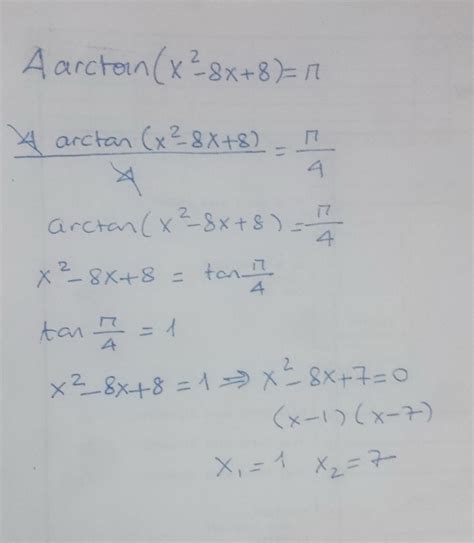 4 arctan(x²-8x+8)=π
4 arctan(x²-8x+8)/4 = π/4
arctan(x²-8x+8)=π/4
x²-8x+8 = tan π/4
tan π/4 = 1
x²-8x+8=1 ⇒ x²-8x+7=0
(x-1)(x-7)
x₁=1 x₂=7